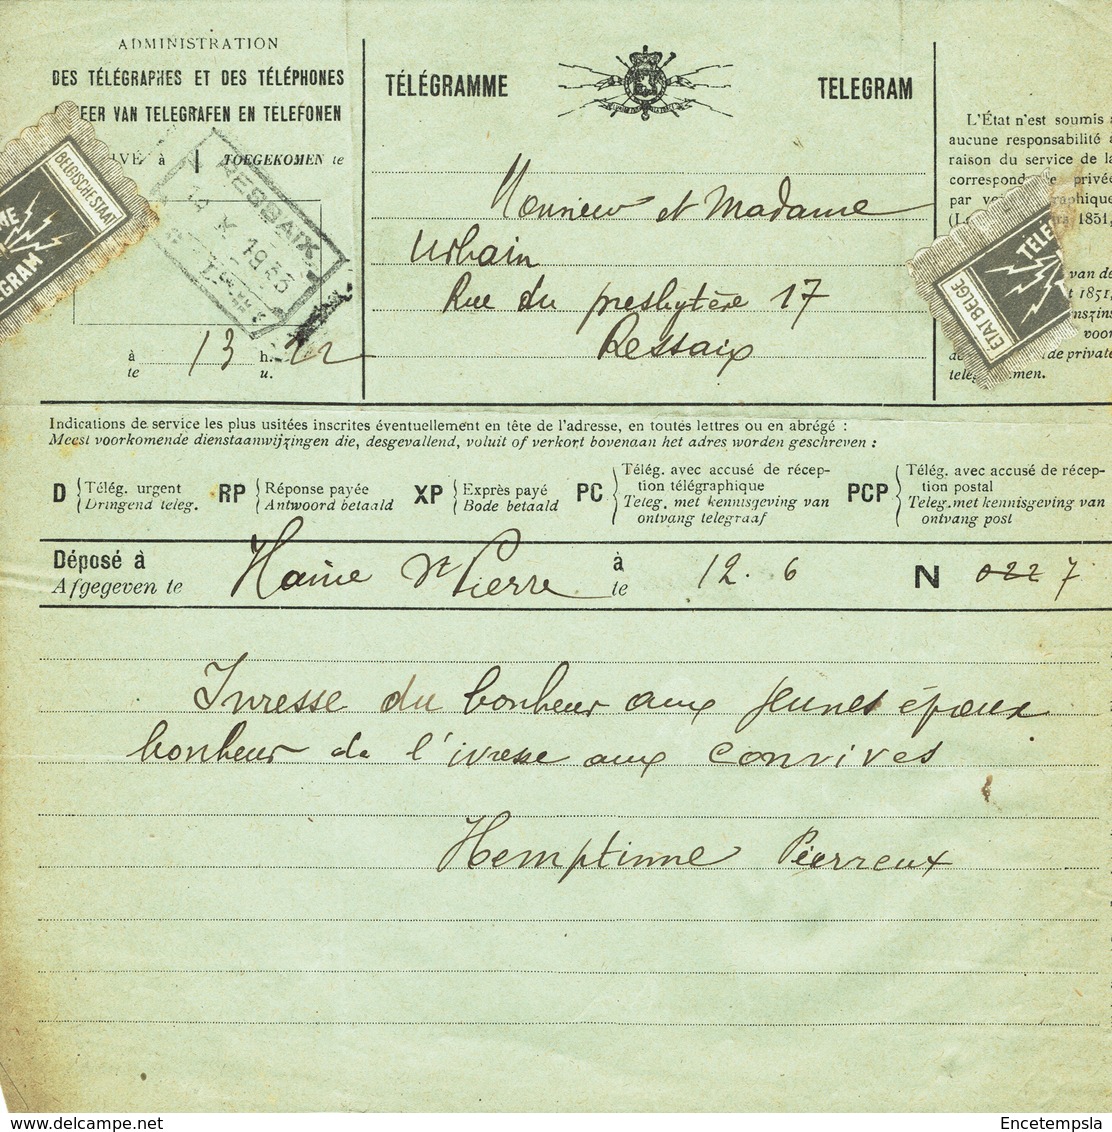 ADMINISTRATION
DES TÉLÉGRAPHES ET DES TÉLÉPHONES
EER VAN TELEGRAFEN EN TELEFONEN
IVÉ à TOEGEKOMEN te
RESSAIX
14 X 1953
à te 13 h. u. 22
TÉLÉGRAMME TELEGRAM
Monsieur et Madame
Urbain
Rue du presbytère 17
Ressaix
BELGISCHE STAAT
ME
GRAM
L'État n'est soumis à
aucune responsabilité à
raison du service de la
correspond e privée
par v graphique
1851,
van de
1851,
nszins
voor
de private
tele men.
TÉLÉ
ÉTAT BELGE
Indications de service les plus usitées inscrites éventuellement en tête de l'adresse, en toutes lettres ou en abrégé :
Meest voorkomende dienstaanwijzingen die, desgevallend, voluit of verkort bovenaan het adres worden geschreven :
D Télég. urgent
Dringend teleg.
RP Réponse payée
Antwoord betaald
XP Exprès payé
Bode betaald
PC Télég. avec accusé de récep-
tion télégraphique
Teleg. met kennisgeving van
ontvang telegraaf
PCP Télég. avec accusé de récep-
tion postal
Teleg. met kennisgeving van
ontvang post
Déposé à
Afgegeven te
Haine St Pierre à te 12.6 N 0227
Ivresse du bonheur aux jeunes époux
bonheur de l'ivresse aux convives
Hemptinne Pierreux
Encetempsla